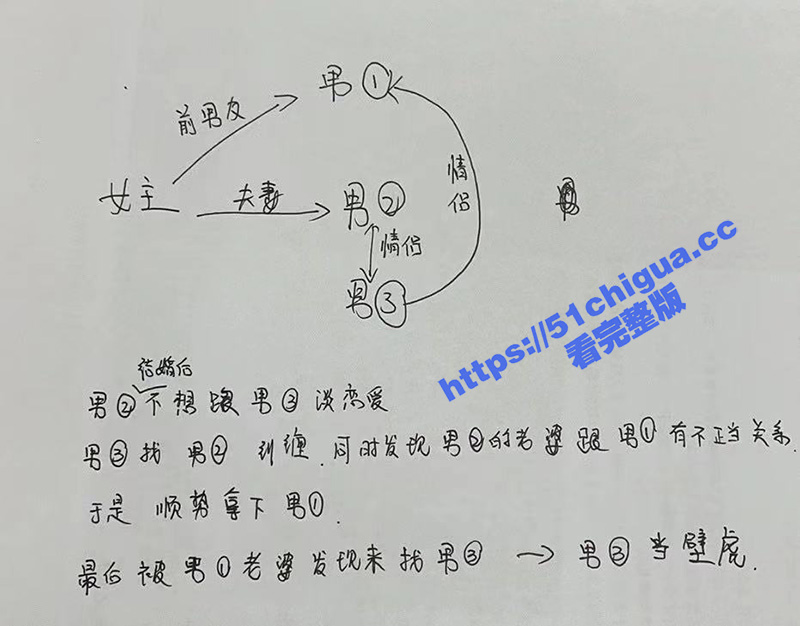 男①
前男友
女主
夫妻
男②
情侣
情侣
男③
https://51chigua.cc
看完整版
结婚后
男②不想跟男③谈恋爱
男③找男②纠缠.同时发现男②的老婆跟男①有不正当关系.
于是 顺势拿下男①.
最后被男①老婆发现来找男③ → 男③当壁虎.